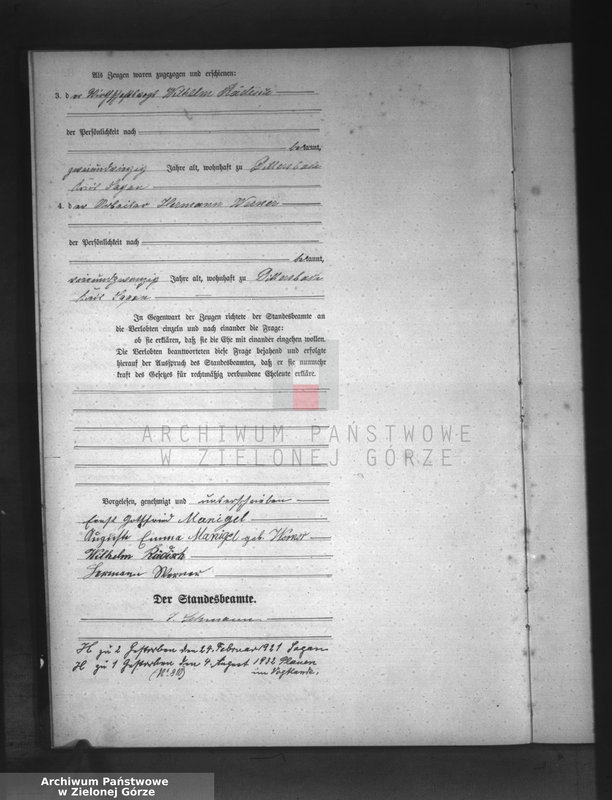 Als Zeugen waren zugezogen und erschienen:
3. der Wirthschaftsvogt Wilhelm
der Persönlichkeit nach
bekannt,
Jahre alt, wohnhaft zu Dittersbach
Kreis Sagan
4. der Arbeiter Hermann Werner
der Persönlichkeit nach
bekannt,
vierundzwanzig Jahre alt, wohnhaft zu Dittersbach
Kreis Sagan
In Gegenwart der Zeugen richtete der Standesbeamte an
die Verlobten einzeln und nach einander die Frage:
ob sie erklären, daß sie die Ehe mit einander eingehen wollen.
Die Verlobten beantworteten diese Frage bejahend und erfolgte
hierauf der Ausspruch des Standesbeamten, daß er sie nunmehr
kraft des Gesetzes für rechtmäßig verbundene Eheleute erkläre.
ARCHIWUM PAŃSTWOWE
W ZIELONEJ GÓRZE
Vorgelesen, genehmigt und unterschrieben
Ernst Gottfried Manigel
Auguste Emma Manigel geb. Werner
Wilhelm
Hermann Werner
Der Standesbeamte.
Lehmann
H zu 2 Gestorben den 24. Februar 1921 Sagan
H zu 1 Gestorben den 4. August 1932 Plauen
im Vogtlande.
Archiwum Państwowe
w Zielonej Górze